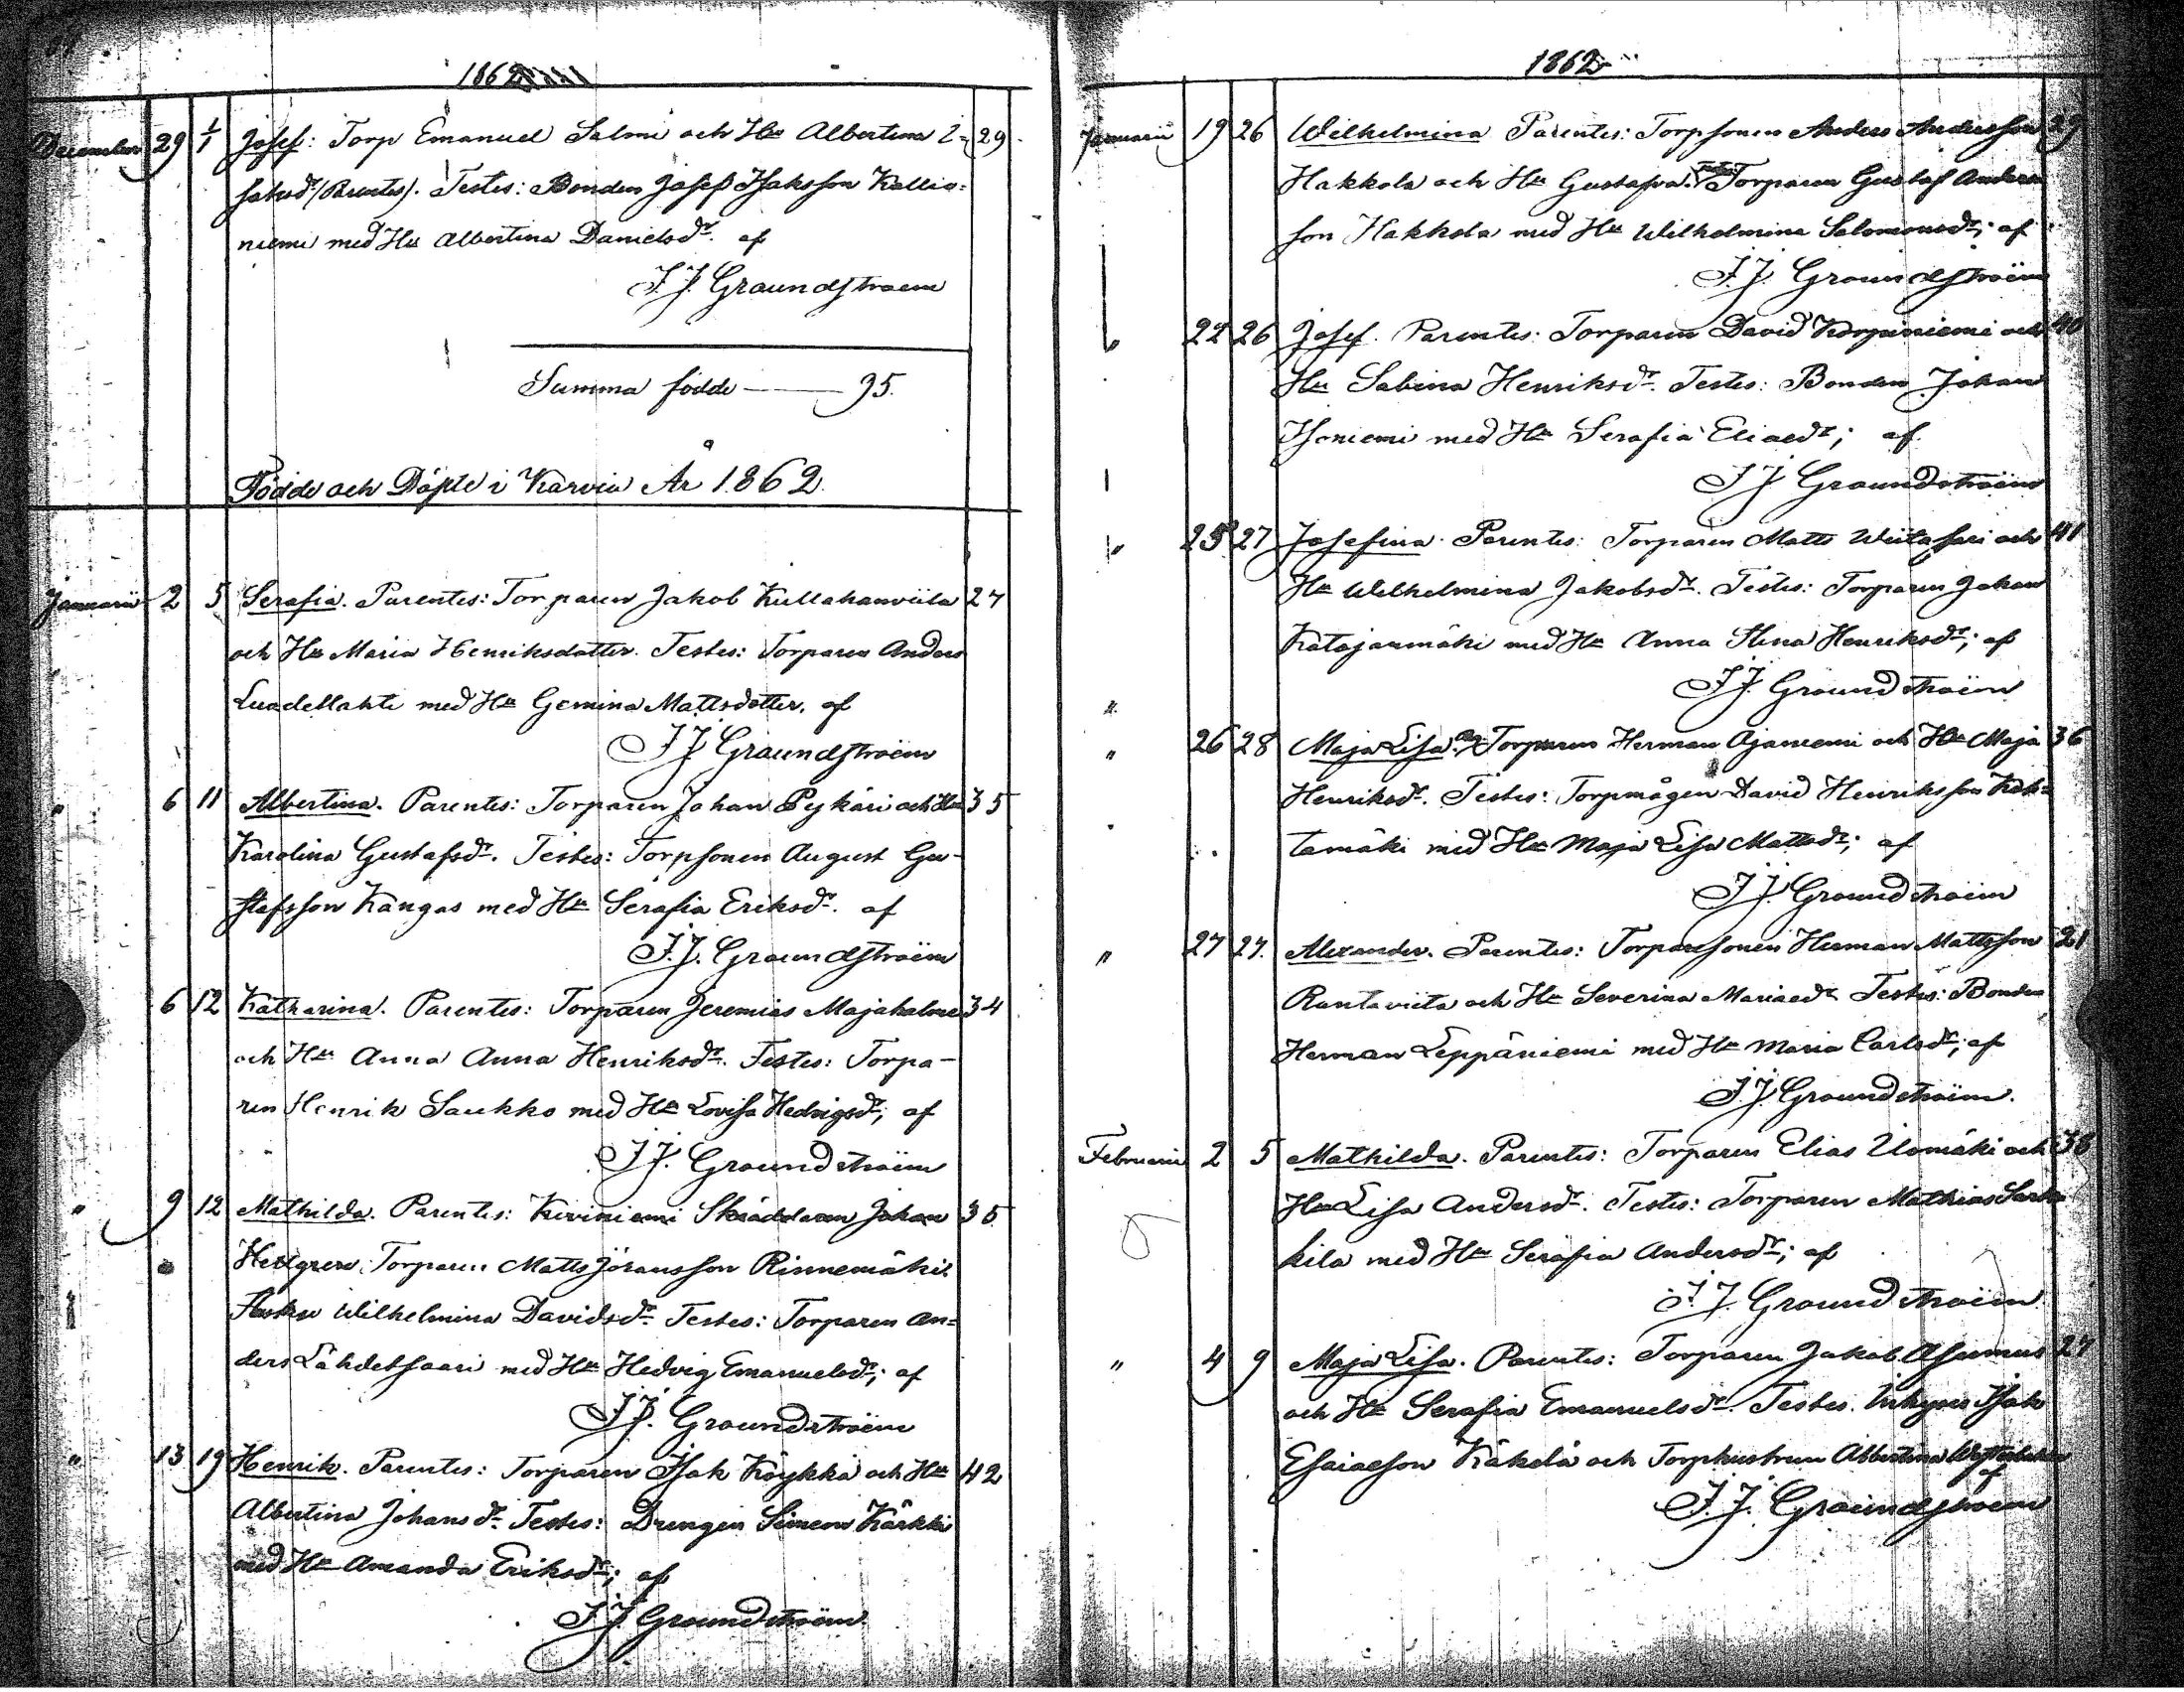 1862
December 29 1/1 Josef: Torp Emanuel Salmi och Hu Albertina I= 29
saksdr (Parentes). Testes: Bonden Josef Isaksson Kallio=
niemi med Hu Albertina Danielsdr. af
J.J. Graundstroëm
Summa födde — 95.
Födde och Döpte i Karvia År 1862.
Januarii 2 5 Serafia. Parentes: Torparen Jakob Kullahanviita 27
och Hu Maria Henriksdotter. Testes: Torparen Anders
med Hu Gemina Mattsdotter, af
J J Graundstroëm
" 6 11 Albertina. Parentes: Torparen Johan Pykäri och Hu 35
Karolina Gustafsdr. Testes: Torpsonen August Gu-
stafsson Kangas med Hu Serafia Eriksdr. af
J.J. Graundstroëm
6 12 Katharina. Parentes: Torparen Jeremias Majahalme 34
och Hu Anna Anna Henriksdr. Testes: Torpa-
ren Henrik Saukko med Hu Lovisa Hedvigsdr; af
J J. Graundstroëm
" 9 12 Mathilda. Parentes: Kiviniemi Skräddaren Johan 35
Hellgren, Torparen Matts Jöransson Rinnemäki
Hustru Wilhelmina Davidsdr Testes: Torparen An=
ders Lähdetsaari med Hu Hedvig Emanuelsdr; af
J J. Graundstroëm
" 13 19 Henrik. Parentes: Torparen Isak Köykkä och Hu 42
Albertina Johansdr. Testes: Drengen Simeon Kärkki
med Hu Amanda Eriksdr; af
J J Graundstroëm
1862
Januarii 19 26 Wilhelmina Parentes: Torpsonen Anders Andersson 29
Hakkola och Hu Gustafva. Testes: Torparen Gustaf Anders
son Hakkola med Hu Wilhelmina Salomonsdr; af
J.J. Graundstroëm
" 22 26 Josef. Parentes: Torparen David Korpiniemi och 40
Hu Sabina Henriksdr. Testes: Bonden Johan
Isoniemi med Hu Serafia Eliaedr; af
J J Graundstroëm
" 25 27 Josefina. Parentes: Torparen Matts Wiitasari och 41
Hu Wilhelmina Jakobsdr. Testes: Torparen Johan
Katajanmäki med Hu Anna Stina Henriksdr; af
J J. Graundstroëm
"
" 26 28 Maja Lisa. Torparen Herman Ajaniemi och Hu Maja 36
Henriksdr. Testes: Torpmågen David Henriksson Kok=
tomäki med Hu Maja Lisa Mattsdr; af
J J. Graundstroëm
" 27 27. Alexander. Parentes: Torparesonen Herman Mattsson 21
Rantaviita och Hu Severina Mariaedr Testes: Bonden
Herman Leppäniemi med Hu Maria Carlsdr; af
J.J. Graundstroëm.
Februarii 2 5 Mathilda. Parentes: Torparen Elias Ilomäki och 36
Hu Lisa Andersdr. Testes: Torparen Mathias Sark
kila med Hu Serafia Andersdr; af
J. J. Graundstroëm
" 4 9 Maja Lisa. Parentes: Torparen Jakob Asumus 27
och Hu Serafia Emanuelsdr. Testes. Isak
Esaiaeson Käkelä och Torphustrun Albertina
af
J. J. Graundstroëm